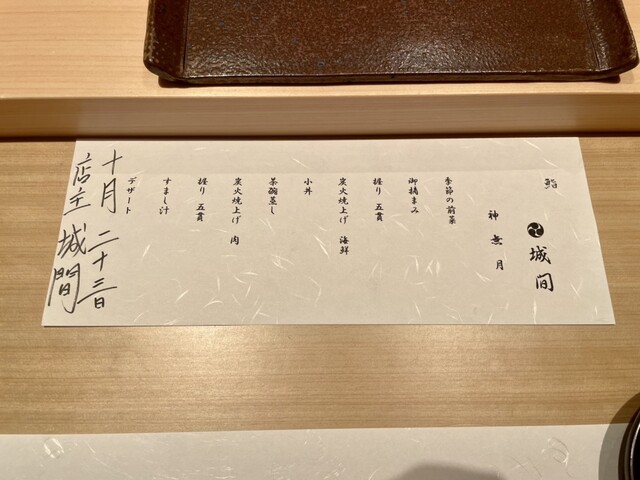 鮨 城間
神無月
季節の前菜
御摘まみ
握り 五貫
炭火焼上げ 海鮮
小丼
茶碗蒸し
炭火焼上げ 肉
握り 五貫
すまし汁
デザート
十月 二十三日
店主 城間